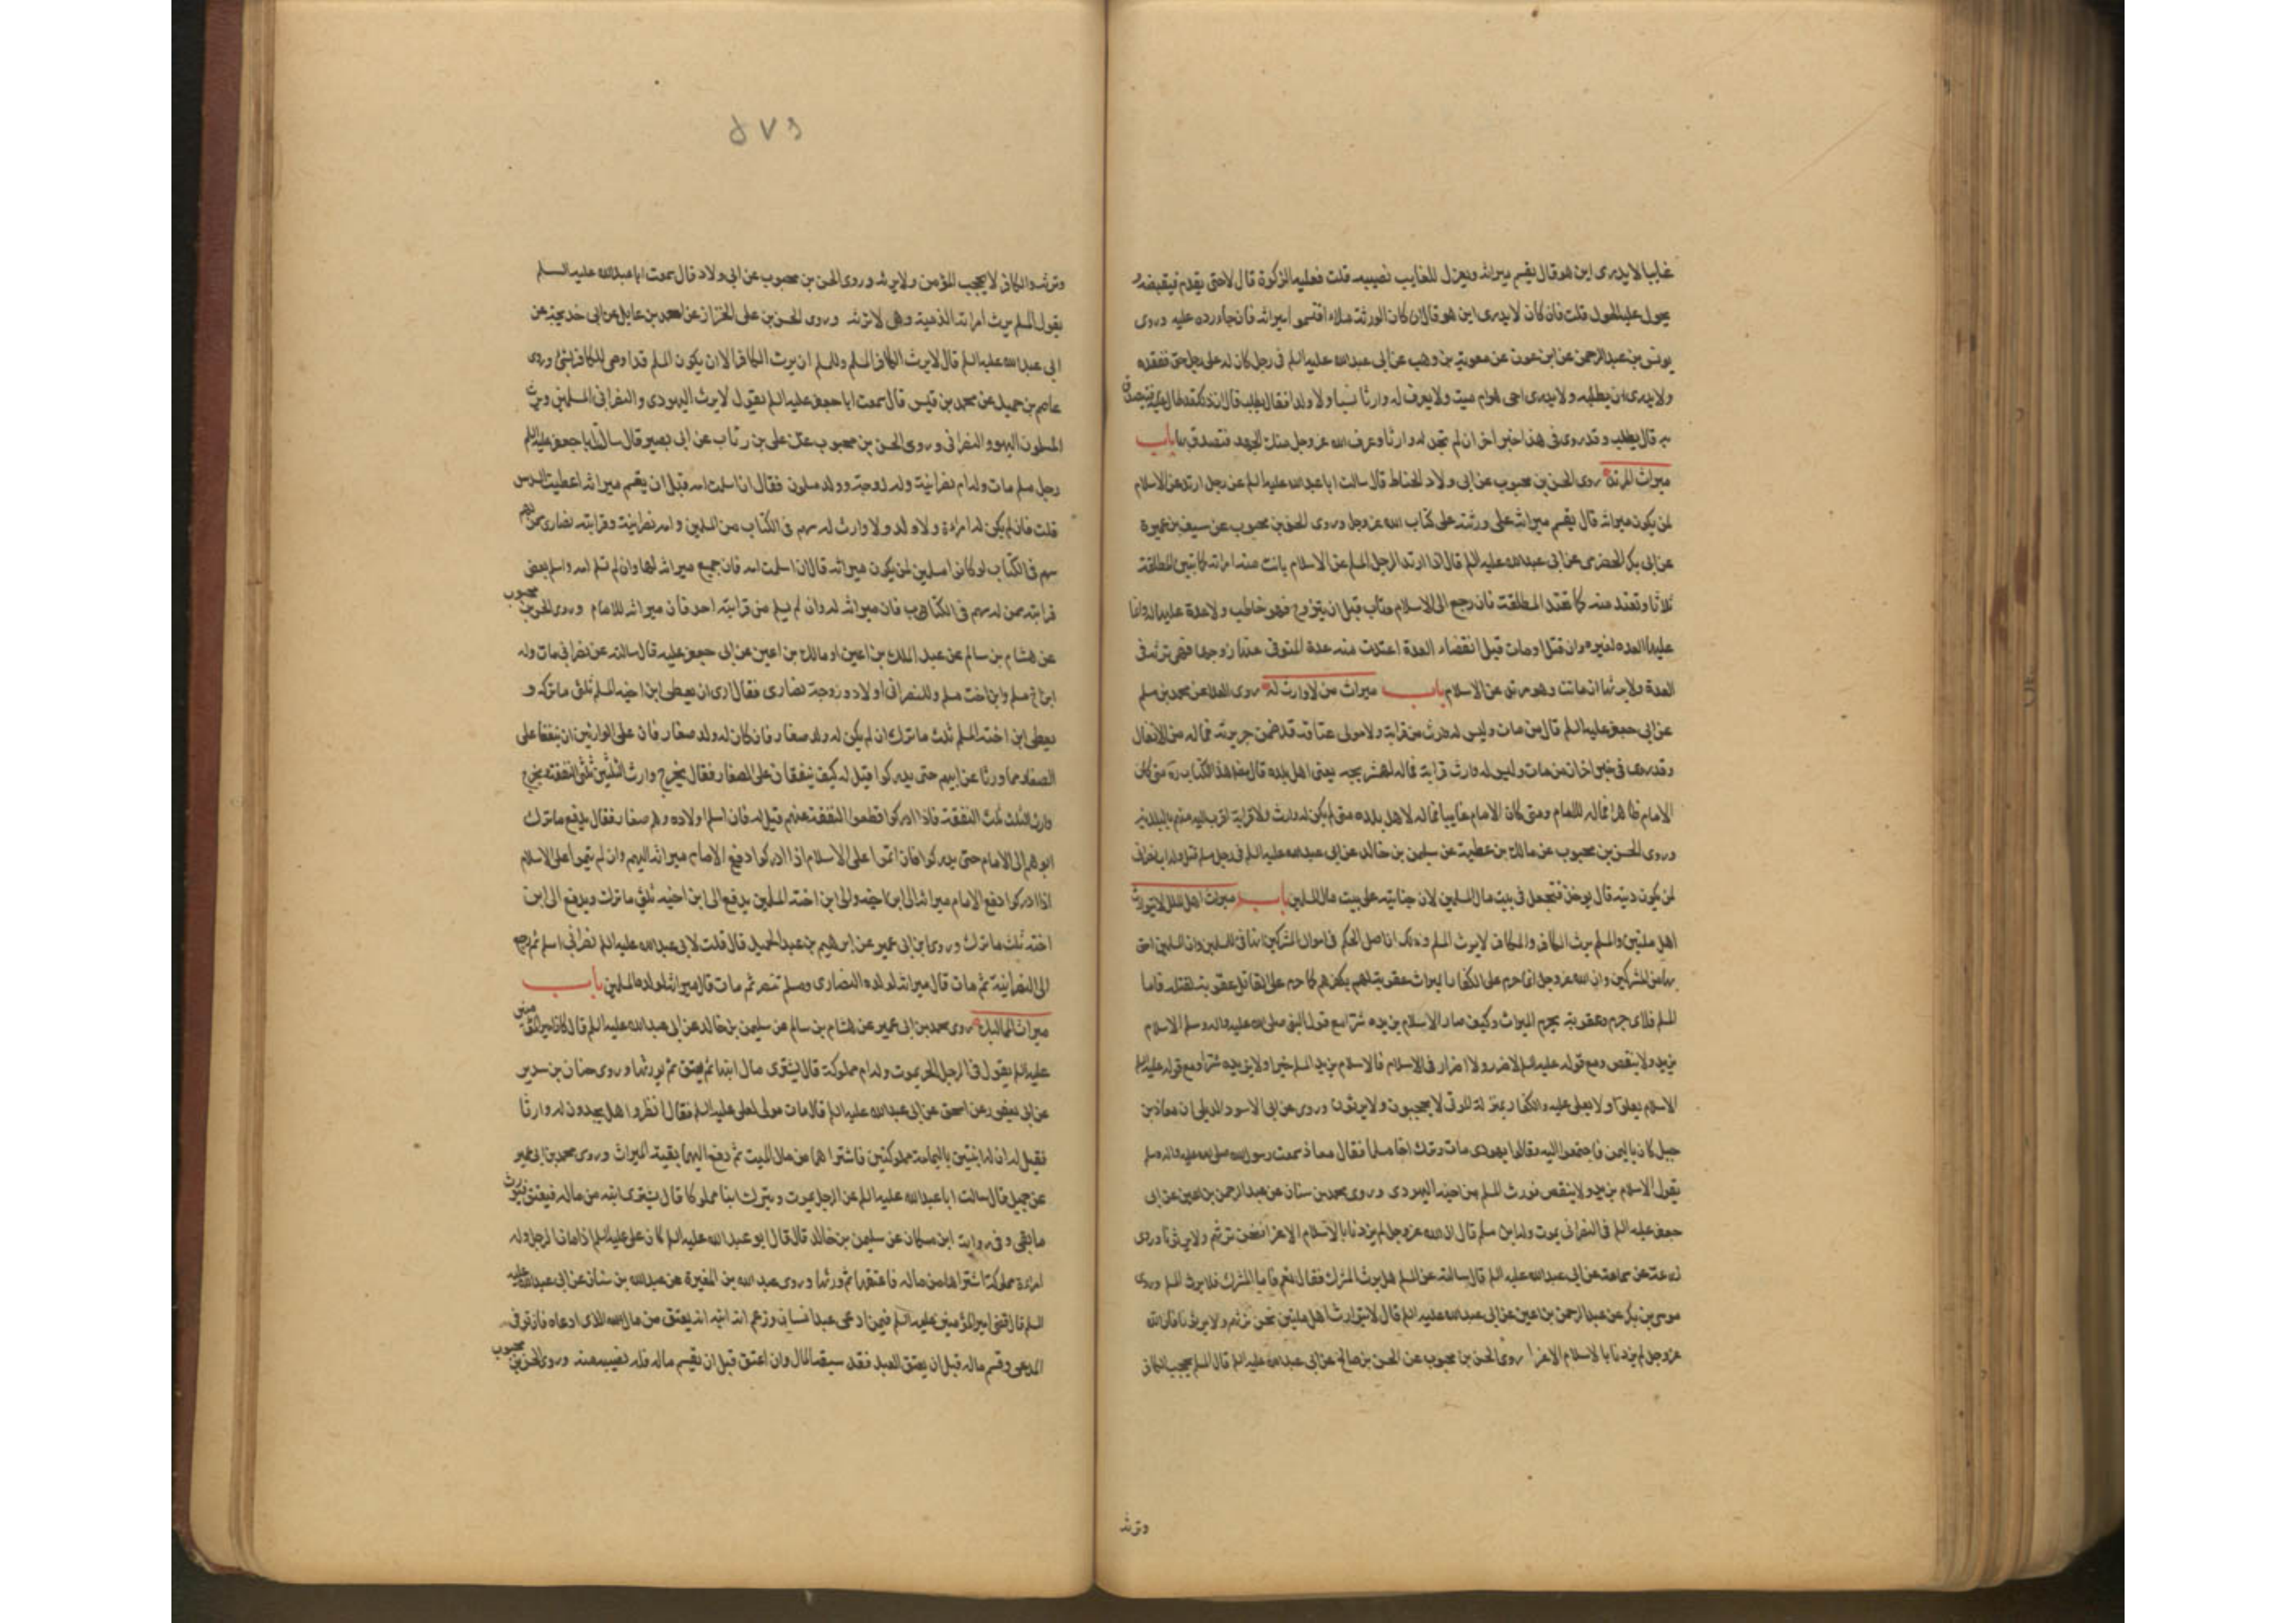 غايبا لا يدرى اين هو قال يقسم ميراثه ويعزل للغايب نصيبه قلت فعليه الزكوة قال لا حتى يقدم فيقبضه
يحول عليه الحول قلت فان كان لا يدرى اين هو قال ان كان الورثة ملاء اقتسموا ميراثه فان جاء ردوه عليه وروى
يونس بن عبد الرحمن عن ابن عون عن معوية بن وهب عن ابى عبد الله عليه السلم فى رجل كان له على رجل حق ففقده
ولا يدرى اين يطلبه ولا يدرى احى هو ام ميت ولا يعرف له وارثا نسبا ولا ولدا فقال اطلب قال ان ذلك قد طال
به قال يطلب وقد روى فى هذا خبر اخر ان لم تجد له وارثا وعرف الله عز وجل منك الجهد فتصدق بها باب
ميراث المرتد روى الحسن بن محبوب عن ابى ولاد الحناط قال سالت ابا عبد الله عليه السلم عن رجل ارتد عن الاسلام
لمن يكون ميراثه قال يقسم ميراثه على ورثته على كتاب الله عز وجل وروى الحسن بن محبوب عن سيف بن عميرة
عن ابى بكر الحضرمى عن ابى عبد الله عليه السلم قال اذا ارتد الرجل المسلم عن الاسلام بانت منه امراته كما تبين المطلقة
ثلاثا وتعتد منه كما تعتد المطلقة فان رجع الى الاسلام وتاب قبل ان يتزوج فهو خاطب ولا عدة عليها له وانما
عليها العده لغيره وان قتل او مات قبل انقضاء العدة اعتدت منه عدة المتوفى عنها زوجها فهى ترثه فى
العدة ولا يرثها ان ماتت وهو مرتد عن الاسلام باب ميراث من لا وارث له روى العلا عن محمد بن مسلم
عن ابى جعفر عليه السلم قال من مات وليس له وارث من قرابة ولا مولى عتاقه قد ضمن جريرته فماله من الانفال
وقد روى فى خبر اخر ان من مات وليس له وارث قرابة فماله لهمشهريجه يعنى اهل بلده قال مصنف هذا الكتاب ره متى كان
الامام ظاهرا فماله للامام ومتى كان الامام غايبا فماله لاهل بلده متى لم يكن له وارث ولا قرابة اقرب اليه منهم بالبلديه
وروى الحسن بن محبوب عن مالك بن عطية عن سليمن بن خالد عن ابى عبد الله عليه السلم فى رجل مسلم قتل وله اب نصرانى
لمن يكون ديته قال يوخذ فتجعل فى بيت مال المسلمين لان جنايته على بيت مال المسلمين باب ميراث اهل الملل لا يتوارث
اهل ملتين والمسلم يرث الكافر والكافر لا يرث المسلم وذلك ان اصل الحكم فى اموال المشركين انها فى للمسلمين وان المسلمين احق
بها من المشركين وان الله عز وجل انما حرم على الكفار الميراث عقوبة لهم بكفرهم كما حرم على القاتل عقوبة لقتله فاما
المسلم فلاى جرم وعقوبة يحرم الميراث وكيف صار الاسلام يزيده شرا مع قول النبى صلى الله عليه واله وسلم الاسلام
يزيد ولا ينقص ومع قوله عليه السلم لا ضرر ولا اضرار فى الاسلام فالاسلام يزيد المسلم خيرا ولا يزيده شرا ومع قوله عليه السلم
الاسلام يعلو ولا يعلى عليه والكفار بمنزلة الموتى لا يحجبون ولا يرثون وروى عن ابى الاسود الديلى ان معاذ بن
جبل كان باليمن فاجتمعوا اليه وقالوا يهودى مات وترك اخا مسلما فقال معاذ سمعت رسول الله صلى الله عليه واله وسلم
يقول الاسلام يزيد ولا ينقص فورث المسلم من اخيه اليهودى وروى محمد بن سنان عن عبد الرحمن بن اعين عن ابى
جعفر عليه السلم فى النصرانى يموت وله ابن مسلم قال ان الله عز وجل لم يزدنا بالاسلام الا عزا فنحن نرثهم ولا يرثونا وروى
زرعة عن سماعة عن ابى عبد الله عليه السلم قال سالته عن المسلم هل يرث المشرك فقال نعم فاما المشرك فلا يرث المسلم وروى
موسى بن بكر عن عبد الرحمن بن اعين عن ابى عبد الله عليه السلم قال لا يتوارث اهل ملتين نحن نرثهم ولا يرثونا فان الله
عز وجل لم يزدنا بالاسلام الا عزا روى الحسن بن محبوب عن الحسن بن صالح عن ابى عبد الله عليه السلم قال المسلم يحجب الكافر
وترثه
۵۷۶
وترثه والكافر لا يحجب المؤمن ولا يرثه وروى الحسن بن محبوب عن ابى ولاد قال سمعت ابا عبد الله عليه السلم
يقول المسلم يرث امراته الذمية وهى لا ترثه وروى الحسن بن على الخزاز عن احمد بن عايذ عن ابى خديجة عن
ابى عبد الله عليه السلم قال لا يرث الكافر المسلم وللمسلم ان يرث الكافر الا ان يكون المسلم قد اوصى للكافر بشئ وروى
عاصم بن حميد عن محمد بن قيس قال سمعت ابا جعفر عليه السلم يقول لا يرث اليهودى والنصرانى المسلمين ويرث
المسلمون اليهود والنصرانى وروى الحسن بن محبوب عن على بن رئاب عن ابى بصير قال سالت ابا جعفر عليه السلم
رجل مسلم مات وله ام نصرانية وله زوجة وولد مسلمون فقال ان اسلمت امه قبل ان يقسم ميراثه اعطيت السدس
قلت فان لم يكن له امراة ولا ولد ولا وارث له سهم فى الكتاب من المسلمين وامه نصرانية وقرابته نصارى ممن لهم
سهم فى الكتاب لو كانوا مسلمين لمن يكون ميراثه قال ان اسلمت امه فان جميع ميراثه لها وان لم تسلم امه واسلم بعض
قرابته ممن له سهم فى الكتاب فان ميراثه له وان لم يسلم من قرابته احد فان ميراثه للامام وروى الحسن بن محبوب
عن هشام بن سالم عن عبد الملك بن اعين او مالك بن اعين عن ابى جعفر عليه قال سالته عن نصرانى مات وله
ابن اخ مسلم وابن اخت مسلم وللنصرانى اولاد وزوجة نصارى فقال ارى ان يعطى ابن اخيه المسلم ثلثى ما تركه و
يعطى ابن اخته المسلم ثلث ما ترك ان لم يكن له ولد صغار فان كان له ولد صغار فان على الوارثين ان ينفقا على
الصغار مما ورثا عن ابيهم حتى يدركوا قيل له كيف ينفقان على الصغار فقال يخرج وارث الثلثين ثلثى النفقة ويخرج
وارث الثلث ثلث النفقة فاذا ادركوا قطعوا النفقة عنهم قيل له فان اسلم اولاده وهم صغار فقال يدفع ما ترك
ابوهم الى الامام حتى يدركوا فان اتموا على الاسلام اذا ادركوا دفع الامام ميراثه اليهم وان لم يتموا على الاسلام
اذا ادركوا دفع الامام ميراثه الى ابن اخيه والى ابن اخته المسلمين يدفع الى ابن اخيه ثلثى ما ترك ويدفع الى ابن
اخته ثلث ما ترك وروى ابن ابى عمير عن ابرهيم بن عبد الحميد قال قلت لابى عبد الله عليه السلم نصرانى اسلم ثم رجع
الى النصرانية ثم مات قال ميراثه لولده النصارى ومسلم تنصر ثم مات قال ميراثه لولده المسلمين باب
ميراث المماليك روى محمد بن ابى عمير عن هشام بن سالم عن سليمن بن خالد عن ابى عبد الله عليه السلم قال كان امير المؤمنين
عليه السلم يقول فى الرجل الحر يموت وله ام مملوكة قال يشترى من مال ابنها ثم يعتق ثم يورثها وروى حنان بن سدير
عن ابن ابى يعفور عن اسحق عن ابى عبد الله عليه السلم قال مات مولى لعلى عليه السلم فقال انظروا هل يجدون له وارثا
فقيل له ان له ابنتين باليمامة مملوكتين فاشتراهما من مال الميت ثم دفع اليهما بقية الميراث وروى محمد بن ابى عمير
عن جميل قال سالت ابا عبد الله عليه السلم عن الرجل يموت ويترك ابنا مملوكا قال يشترى ابنه من ماله فيعتق ويورث
ما بقى وفى رواية ابن مسكان عن سليمن بن خالد قال قال ابو عبد الله عليه السلم كان على عليه السلم اذا مات الرجل وله
امراة مملوكة اشتراها من ماله فاعتقها ثم ورثها وروى عبد الله بن المغيرة عن عبد الله بن سنان عن ابى عبد الله عليه
السلم قال قضى امير المؤمنين عليه السلم فيمن ادعى عبد انسان وزعم انه ابنه انه يعتق من مال الذى ادعاه فان توفى
المدعى وقسم ماله قبل ان يعتق العبد فقد سبقه المال وان اعتق قبل ان يقسم ماله فله نصيبه منه وروى الحسن بن محبوب